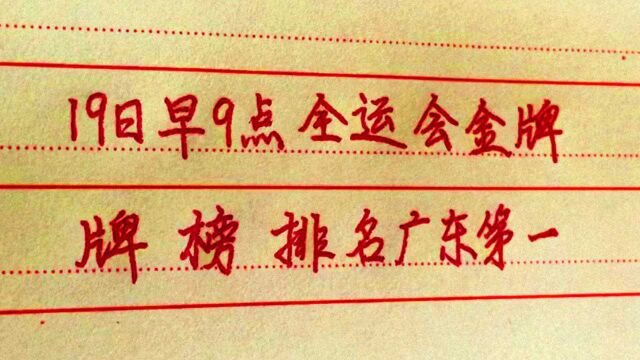 19日早9点全运会金牌
牌榜排名广东第一